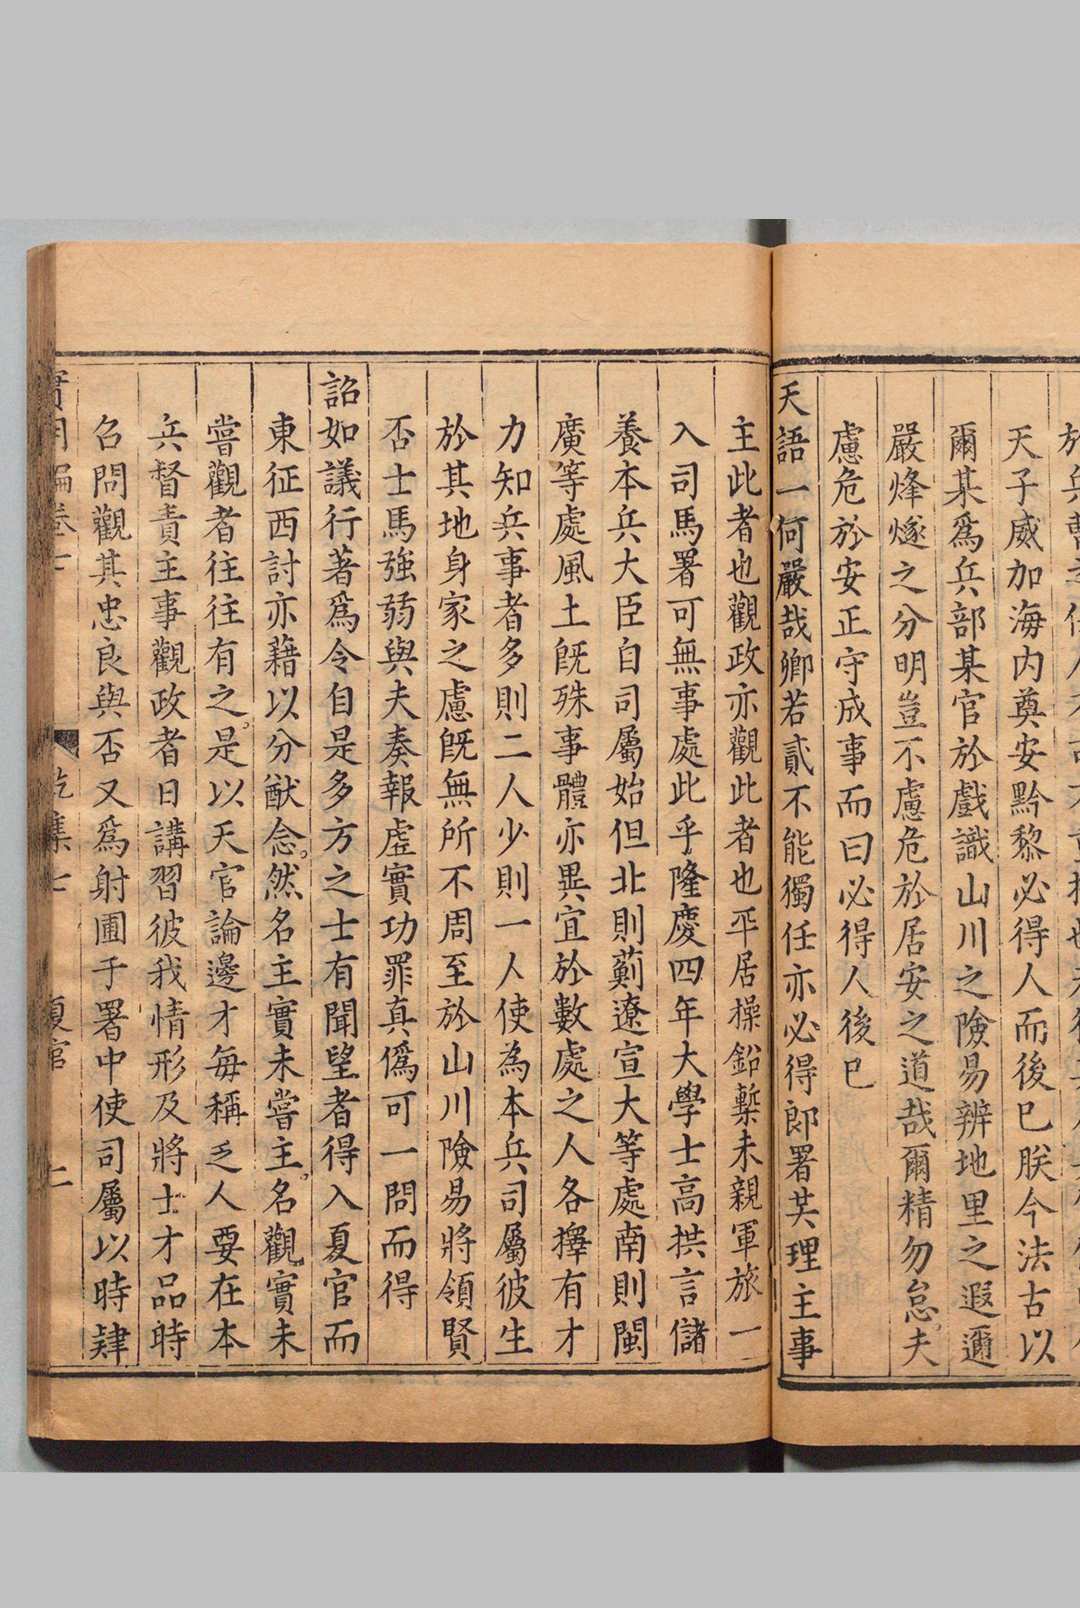 天子威加海内奠安黔黎必得人而後已朕今法古以
爾某爲兵部某官於戲識山川之險易辨地里之遐邇
嚴烽燧之分明豈不慮危於居安之道哉爾精勿怠夫
慮危於安正守成事而曰必得人後已
天語一何嚴哉卿若貳不能獨任亦必得郎署英理主事
主此者也觀政亦觀此者也平居操鉛槧未親軍旅一
入司馬署可無事處此乎隆慶四年大學士高拱言儲
養本兵大臣自司屬始但北則薊遼宣大等處南則閩
廣等處風土既殊事體亦異宜於數處之人各擇有才
力知兵事者多則二人少則一人使為本兵司屬彼生
於其地身家之慮既無所不周至於山川險易將領賢
否士馬強弱與夫奏報虛實功罪真僞可一問而得
詔如議行著爲令自是多方之士有聞望者得入夏官而
東征西討亦藉以分猷念然名主實未嘗主名觀實未
嘗觀者往往有之是以天官論邊才每稱乏人要在本
兵督責主事觀政者日講習彼我情形及將士才品時
召問觀其忠良與否又爲射圃于署中使司屬以時肄
編卷七 乾集七 夏官